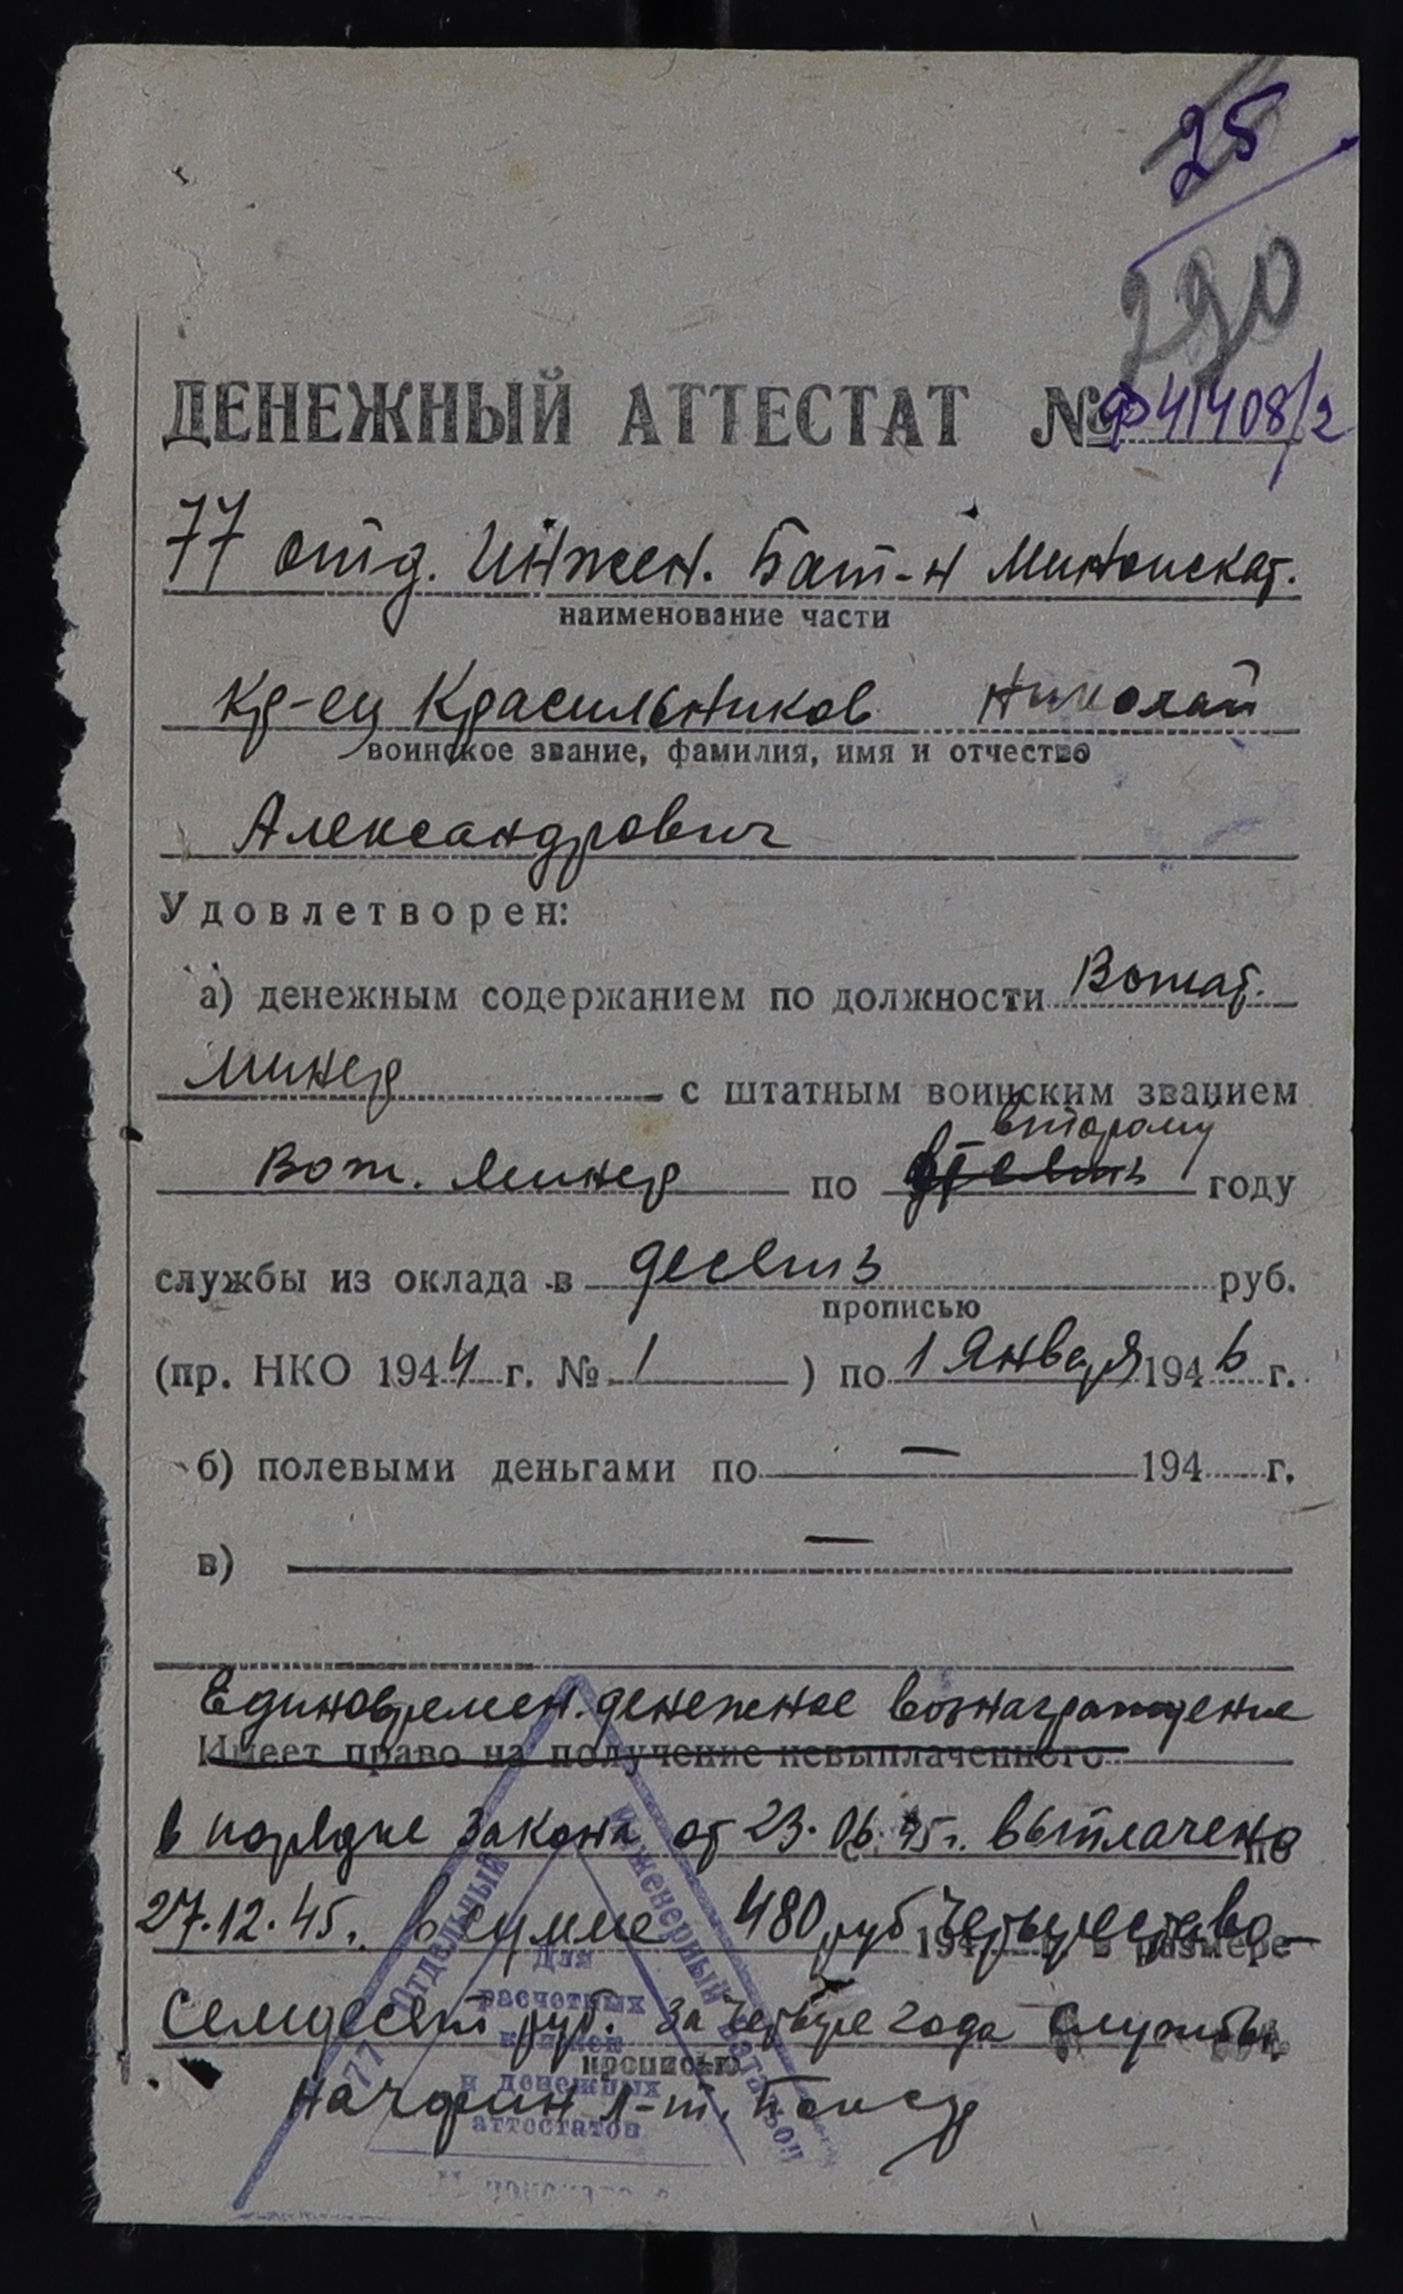 25
290
ДЕНЕЖНЫЙ АТТЕСТАТ № Ф41408/2
77 отд. Инжен. Бат-н Миноискат.
наименование части
Кр-ец Красильников Николай
воинское звание, фамилия, имя и отчество
Александрович
Удовлетворен:
а) денежным содержанием по должности Вожат.
минер с штатным воинским званием
второму
Вож. минер по году
службы из оклада в десять руб.
прописью
(пр. НКО 1944 г. № 1 ) по 1 Января 1946 г.
б) полевыми деньгами по — 194 г.
в) —
Единовремен. денежное вознаграждение
Имеет право на получение невыплаченного
в порядке закона от 23.06.45г. выплачено
по
27.12.45г. в сумме 480 руб Четыреста во-
194 г. в размере
семдесят руб. за четыре года службы
прописью
Начфин л-т.
77 Отдельный Инженерный Батальон
Для
расчетных
книжек
и денежных
аттестатов